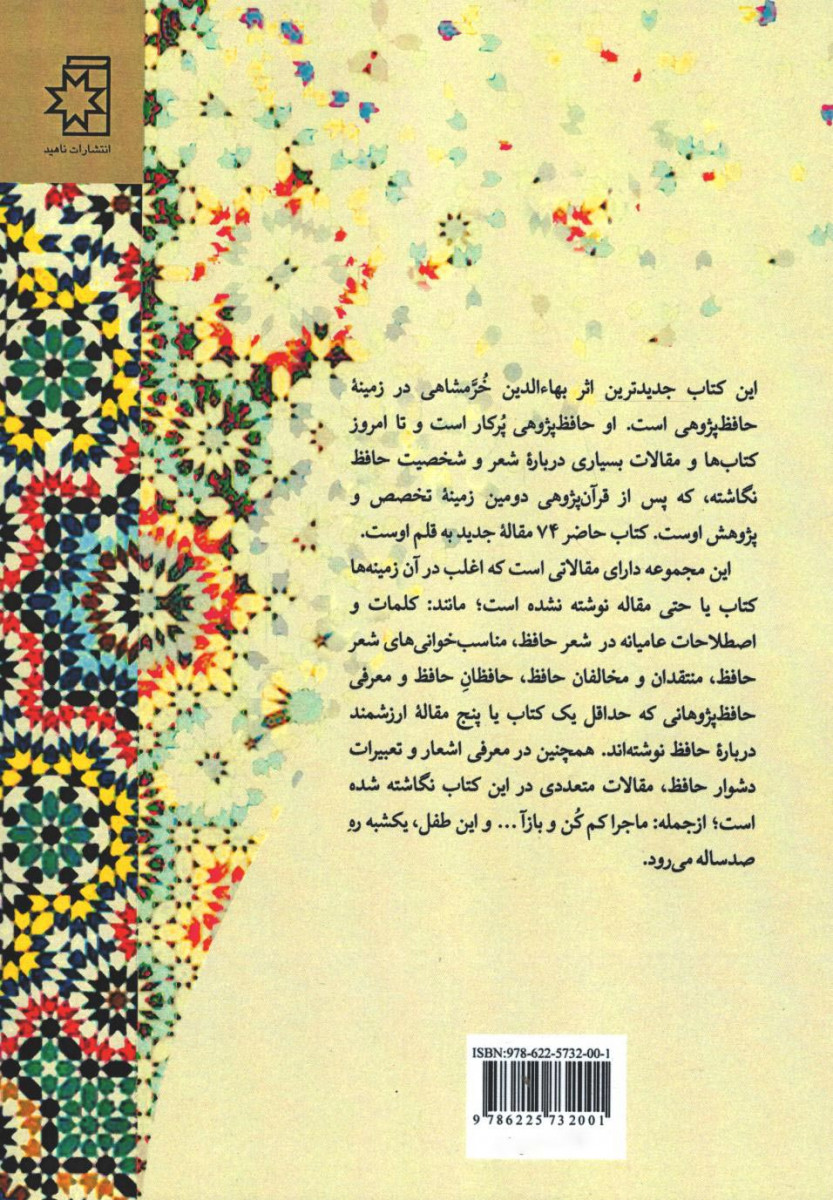 انتشارات ناهید
این کتاب جدیدترین اثر بهاءالدین خُرَّمشاهی در زمینهٔ
حافظ‌پژوهی است. او حافظ‌پژوهی پُرکار است و تا امروز
کتاب‌ها و مقالات بسیاری دربارهٔ شعر و شخصیت حافظ
نگاشته، که پس از قرآن‌پژوهی دومین زمینهٔ تخصص و
پژوهش اوست. کتاب حاضر ۷۴ مقالهٔ جدید به قلم اوست.
این مجموعه دارای مقالاتی است که اغلب در آن زمینه‌ها
کتاب یا حتی مقاله نوشته نشده است؛ مانند: کلمات و
اصطلاحات عامیانه در شعر حافظ، مناسب‌خوانی‌های شعر
حافظ، منتقدان و مخالفان حافظ، حافظانِ حافظ و معرفی
حافظ‌پژوهانی که حداقل یک کتاب یا پنج مقالهٔ ارزشمند
دربارهٔ حافظ نوشته‌اند. همچنین در معرفی اشعار و تعبیرات
دشوار حافظ، مقالات متعددی در این کتاب نگاشته شده
است؛ ازجمله: ماجرا کم کُن و بازآ ... و این طفل، یکشبه رهِ
صدساله می‌رود.
ISBN:978-622-5732-00-1
9 786225 732001